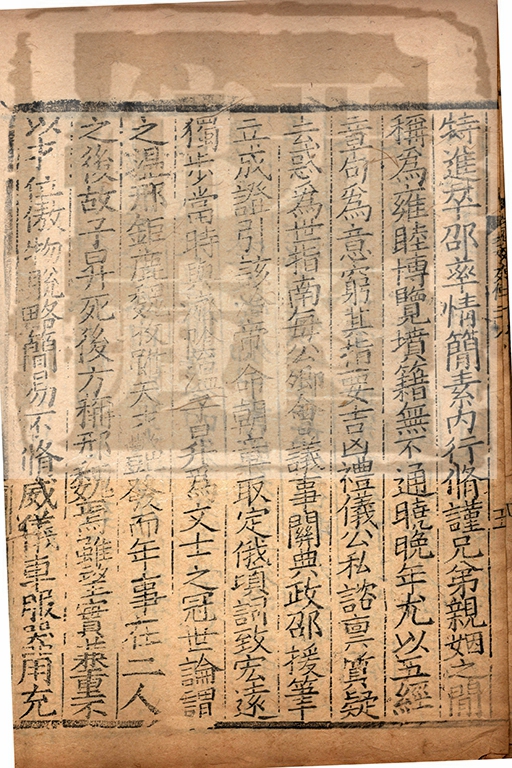 特進卒邵率情簡素內行脩謹兄弟親姻之間
稱為雍睦博覽墳籍無不通曉晚年尤以五經
章句爲意窮其指要吉凶禮儀公私諮稟質疑
去惑爲世指南每公卿會議事關典故邵援筆
立成證引該洽帝命朝章取定俄頃詞致宏遠
獨步當時與濟陰溫子昇爲文士之冠世論謂
之溫邢鉅鹿魏收雖天才豔發而年事在二人
之後故子昇死後方稱邢魏焉雖望實兼重不
以才位傲物脫略簡易不脩威儀車服器用充